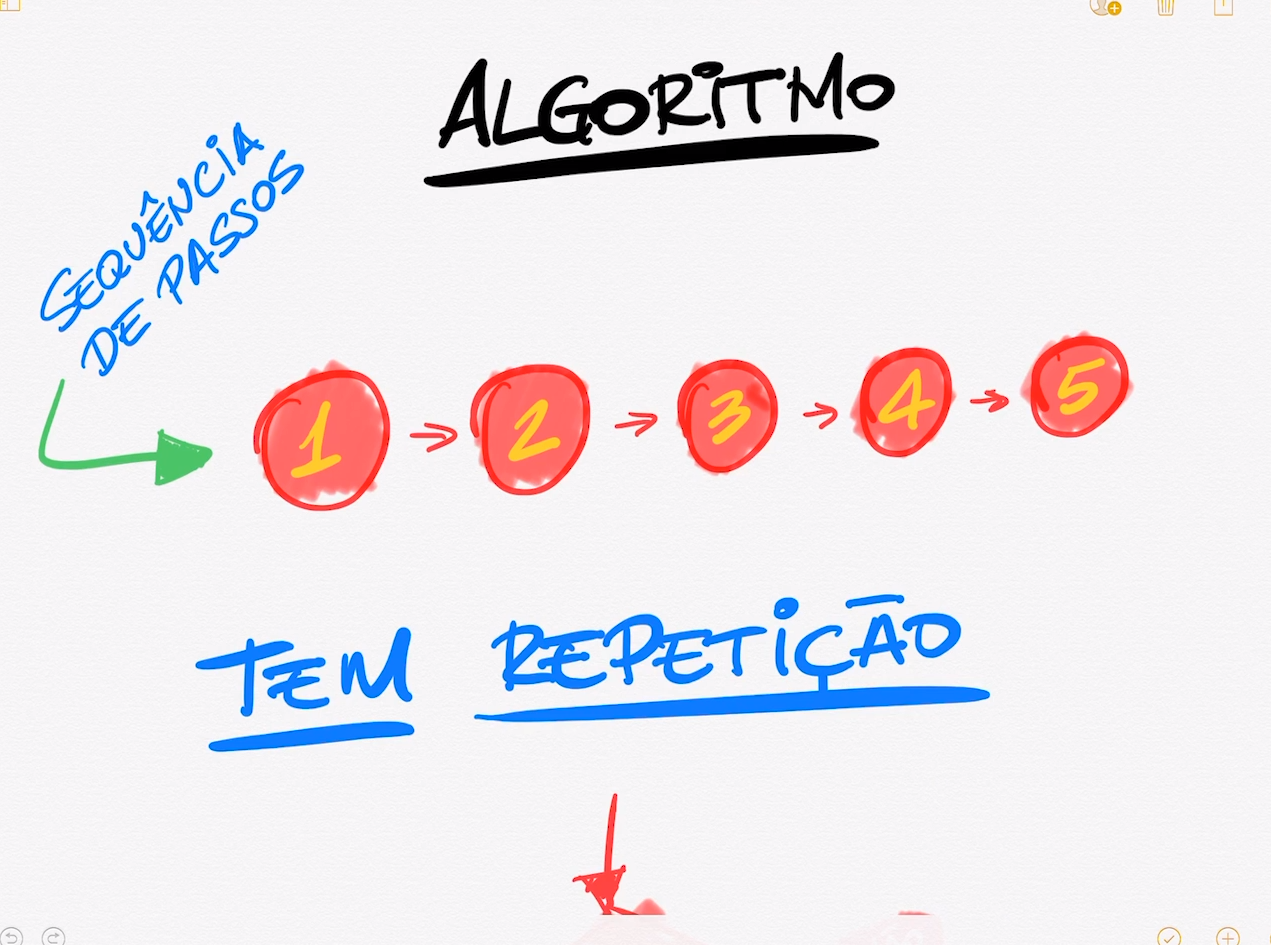 ALGORITMO
SEQUÊNCIA
DE PASSOS
1 → 2 → 3 → 4 → 5
TEM REPETIÇÃO